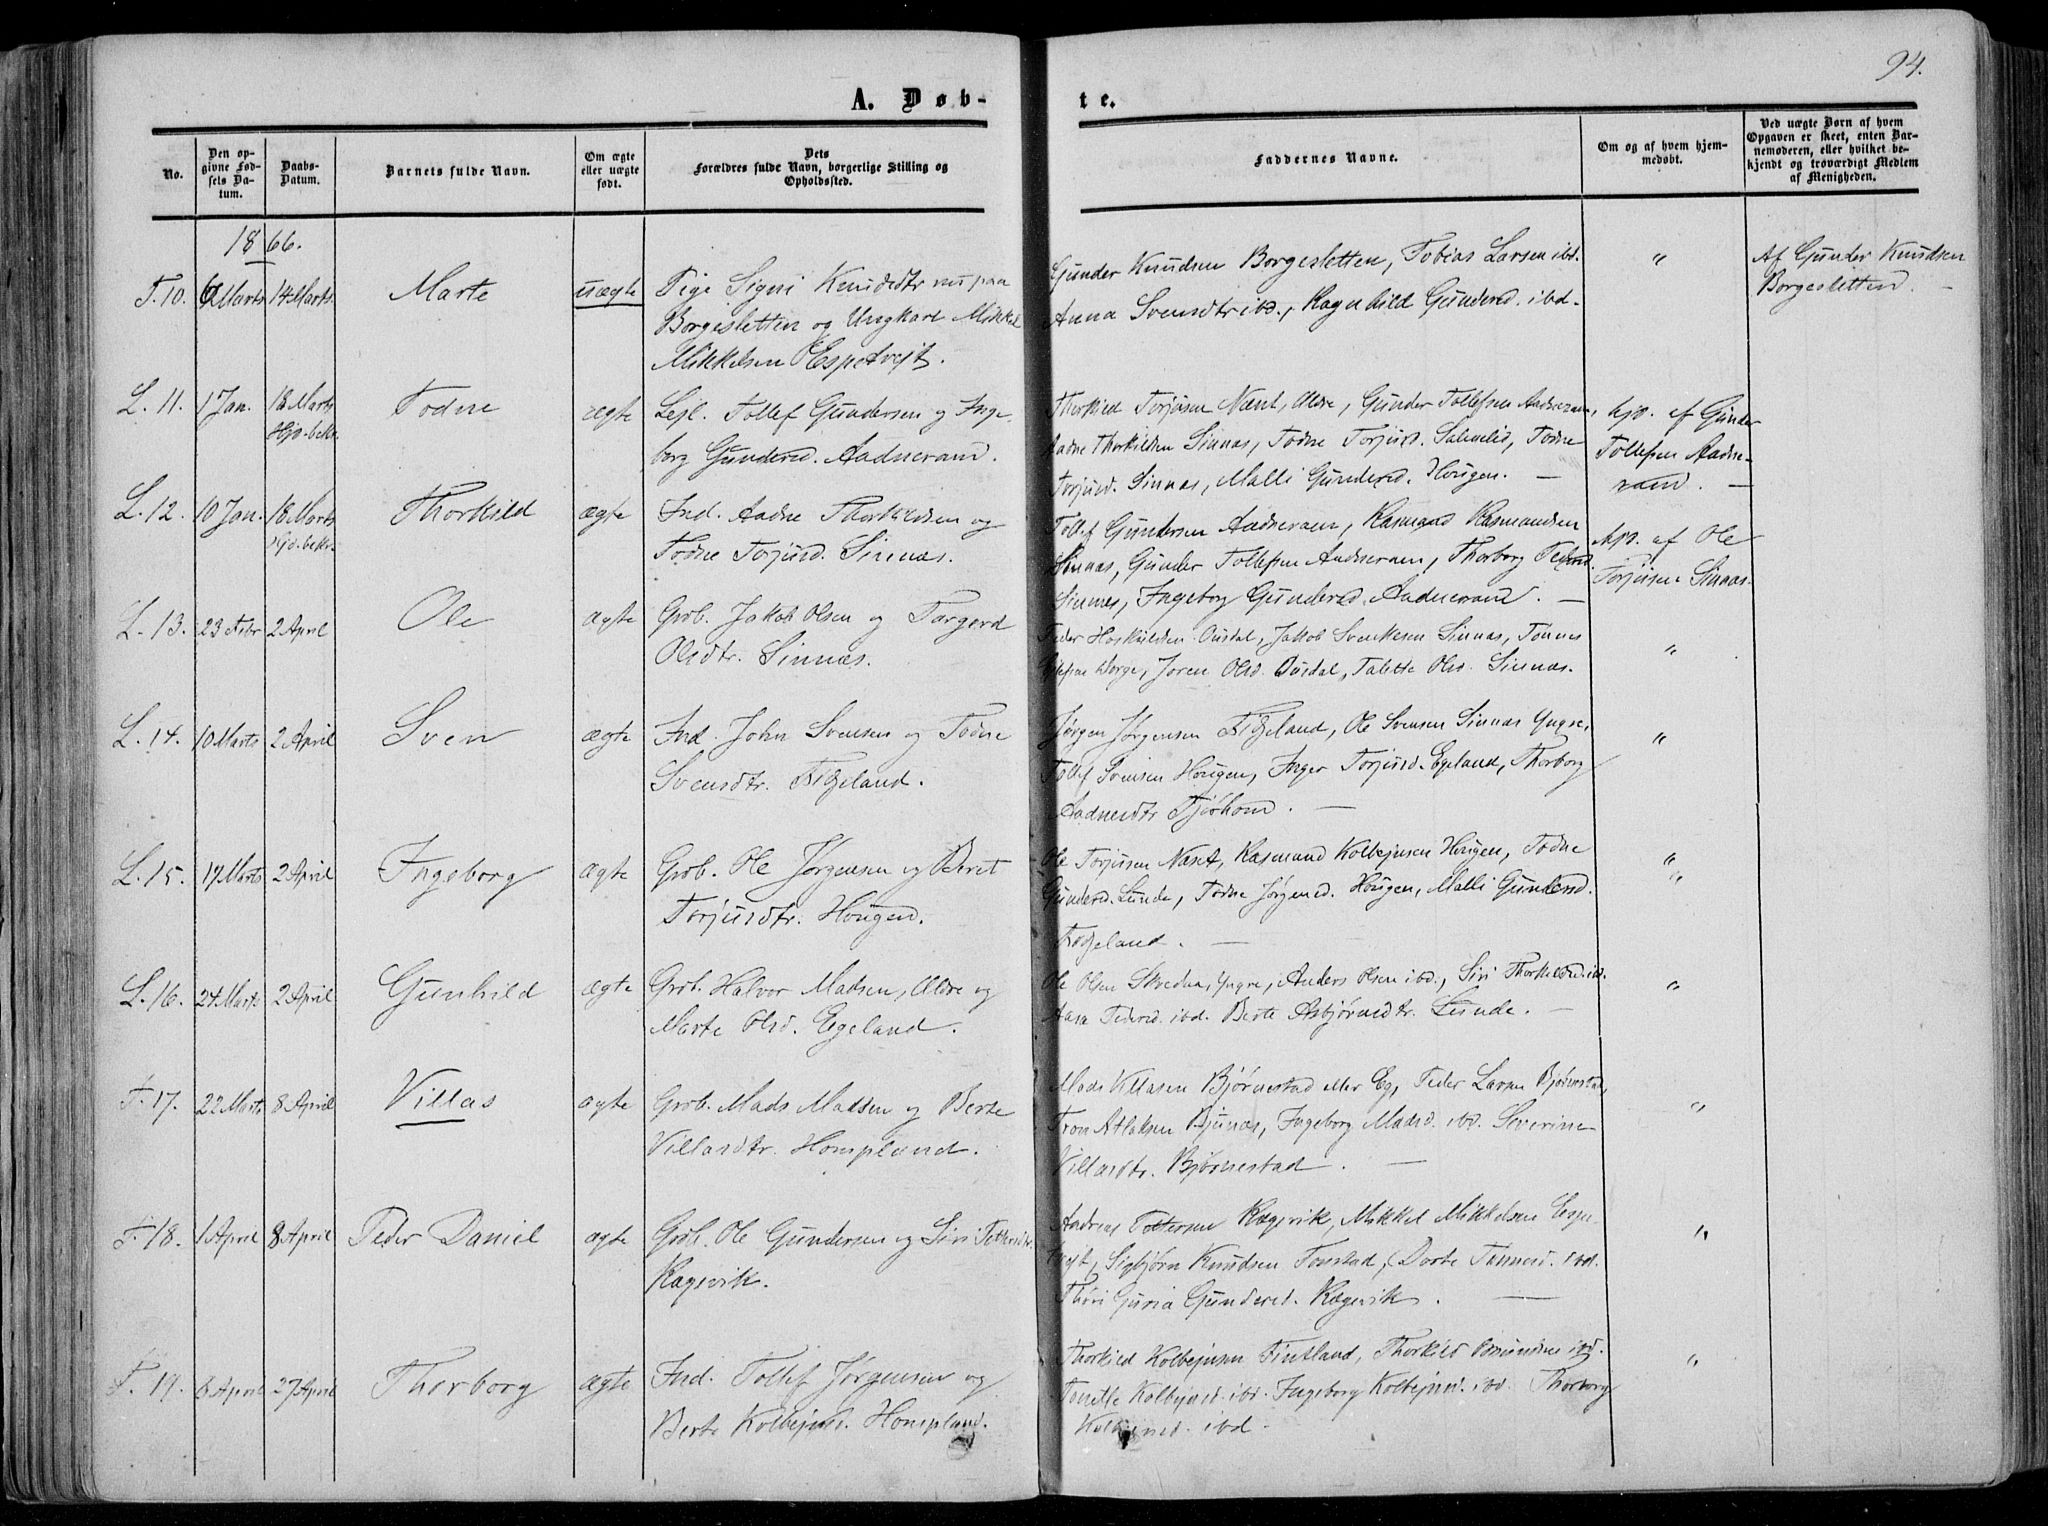 94.
A. Døb-
te.
No.
Den op-
givne Fød-
sels Da-
tum.
Daabs-
Datum.
Barnets fulde Navn.
Om ægte
eller uægte
født.
Dets
Forældres fulde Navn, borgerlige Stilling og
Opholdssted.
Faddernes Navne.
Om og af hvem hjem-
medøbt.
Ved uægte Børn af hvem
Opgaven er skeet, enten Bar-
nemoderen, eller hvilket be-
kjendt og troværdigt Medlem
af Menigheden.
1866.
F. 10. 6 Marts 14 Marts Marte uægte Pige Signi Knudsdtr nu paa
Borgesletten og Ungkarl Mikkel
Mikkelsen Espetvejt.
Gunder Knudsen Borgesletten, Tobias Larsen ibd.
Anna Svensdtr ibd., Ragnhild Gundersd. ibd.
"
Af Gunder Knudsen
Borgesletten. -
L. 11. 1 Jan. 18 Marts Todne ægte Lejl. Tollef Gundersen og Inge-
Hjd. bekr.
borg Gundersd. Aadneram.
Thorkild Torjusen Næset, Ældre, Gunder Tollefsen Aadneram,
Aadne Thorkildsen Sinnæs, Todne Torjusd. Salmelid, Todne
Torjusd. Sinnæs, Malli Gundersd. Hougen. -
hjd. af Gunder
Tollefsen Aadne-
ram. -
L. 12. 10 Jan. 18 Marts Thorkild ægte Ind. Aadne Thorkildsen og
Hjd. bekr.
Todne Torjusd. Sinnæs.
Tollef Gundersen Aadneram, Rasmund Rasmundsen
Sinnæs, Gunder Tollefsen Aadneram, Thorborg Pedersd.
Sinnæs, Ingeborg Gundersd. Aadneram. -
hjd. af Ole
Torjusen Sinnæs.
L. 13. 23 Febr 2 April Ole ægte Grb. Jakob Olsen og Torgerd
Olsdtr. Sinnæs.
Peder Hoskuldsen Ousdal, Jakob Svenkesen Sinnæs, Tønnes
Worge, Joren Olsd. Ousdal, Talette Olsd. Sinnæs.
"
L. 14. 10 Marts 2 April Sven ægte Ind. John Svensen og Todne
Svensdtr. Fidjeland.
Jørgen Jørgensen Fidjeland, Ole Svensen Sinnæs Yngre,
Tollef Svensen Hougen, Inger Torjusd. Egeland, Thorborg
Aadnesdtr Tjørhom. -
"
L. 15. 17 Marts 2 April Ingeborg ægte Grb. Ole Jørgensen og Beret
Torjusdtr. Hougen.
Ole Torjusen Næset, Rasmund Kolbejnsen Hougen, Todne
Gundersd. Lunde, Todne Jørgensd. Hougen, Malli Gundersd.
Fidjeland. -
"
"
L. 16. 24 Marts 2 April Gunhild ægte Grb. Halvor Madsen, Ældre og
Marte Olsd. Egeland.
Ole Olsen Skredaa, Yngre, Anders Olsen ibd., Siri Thorkildsd. ibd.
Aasa Pedersd. ibd. Berte Asbjørnsdtr. Lunde. -
"
F. 17. 22 Marts 8 April Villas ægte Grb. Mads Madsen og Berte
Villasdtr. Hompland.
Mads Villasen Bjørnestad eller Eg, Peder Larsen Bjørnestad,
Tron Atlaksen Bjunæs, Ingeborg Madsd. ibd. Severine
Villasdtr. Bjørnestad. -
"
F. 18. 1 April 8 April Peder Daniel ægte Grb. Ole Gundersen og Siri Pettersdtr.
Rægevik.
Andreas Pettersen Rægevik, Mikkel Mikkelsen Espe-
tvejt, Sigbjørn Knudsen Tonstad, Dorte Tønnesd. ibd.
Thøri Guria Gundersd. Rægevik. -
"
F. 19. 6 April 27 April Thorborg ægte Ind. Tollef Jørgensen og
Berte Kolbejnsd. Hompland.
Thorkild Kolbejnsen Fintland, Thorkild Omundsen ibd.
Tonette Kolbejnsd. ibd. Ingeborg Kolbejnsd. ibd. Thorborg
Kolbejnsd. ibd.
"